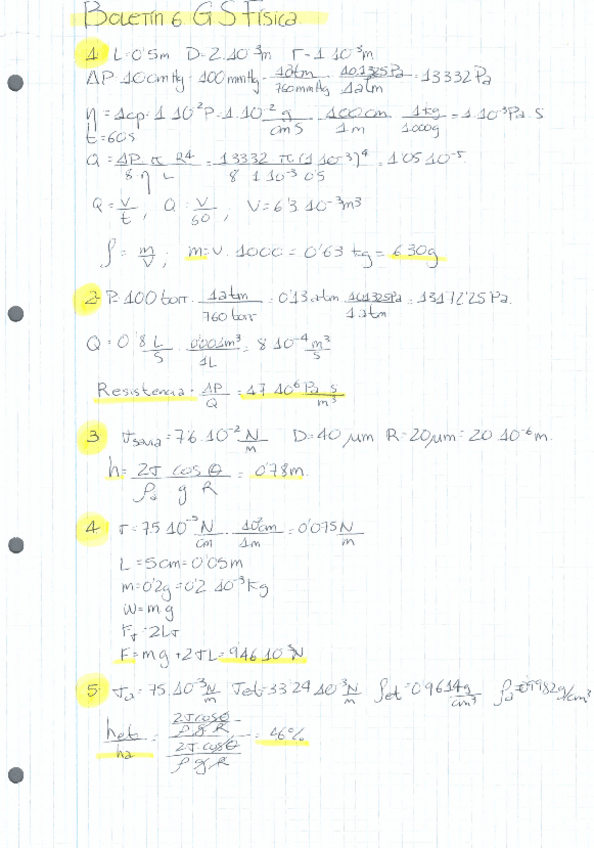 Boletín 6 GS Física
1 L=0'5m D=2·10⁻³m r=1·10⁻³m
ΔP=100mmHg=100mmHg·1atm/760mmHg·101325Pa/1atm=13332Pa
η=1cp=1·10⁻²P=1·10⁻² g/cm s·100cm/1m·1kg/1000g=1·10⁻³Pa·s
t=60s
Q=ΔP π R⁴/8 η L=13332 π(1·10⁻³)⁴/8 1·10⁻³ 0'5=1'05·10⁻⁵
Q=V/t; Q=V/60; V=6'3·10⁻³m³
ρ=m/V; m=V·1000=0'63 kg=630g
2 P=100torr·1atm/760torr=0'13atm·101325Pa/1atm=13172'25Pa.
Q=0'8 L/s·0'001m³/1L=8·10⁻⁴ m³/s
Resistencia=ΔP/Q=47·10⁶ Pa s/m³
3 σsavia=7'6·10⁻² N/m D=40μm R=20μm=20·10⁻⁶m.
h=2σ cos θ/ρ g R=0'78m.
4 σ=7'5·10⁻³ N/cm·10²cm/1m=0'075 N/m
L=5cm=0'05m
m=0'2g=0'2·10⁻³kg
W=mg
Fσ=2Lσ
F=mg+2σL=9'46·10⁻³N
5 σa=75·10⁻³ N/m σet=33'24·10⁻³ N/m ρet=0'9614 g/cm³ ρa=0'9982g/cm³
het/ha=2σcosθ/ρ g R/2σcosθ/ρ g R=46%